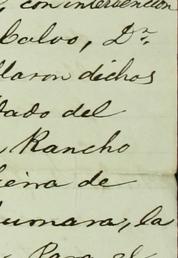 con intervencion
Calvo, Dn.
llaron dichos
tado del
Rancho
ierra de
humara, la
Para el